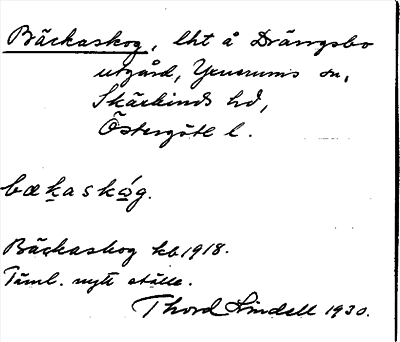 Bäckaskog, lht å Drängsbo
utgård, Yxnerums sn,
Skärkinds hd,
Östergötl l.
bækaskóg.
Bäckaskog kb 1918.
Täml. nytt ställe.
Thord Lindell 1930.